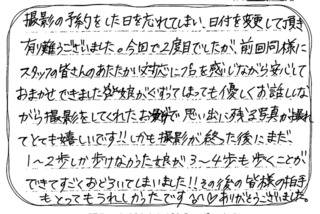 撮影の予約をした日を忘れてしまい、日付を変更して頂き
有難うございました。今回で2度目でしたが、前回同様に
スタッフの皆さんのあたたかい対応に心を感じながら安心して
おまかせできました。娘がぐずってしまっても優しくお話しな
がら撮影をしてくれたお陰で思い出に残る写真が撮れ
てとても嬉しいです!!しかも撮影が終った後にまだ、
1〜2歩しか歩けなかった娘が3〜4歩も歩くことが
できてすごくおどろいてしまいました!!その後の皆様の拍手
もとってもうれしかったです ありがとうございました。